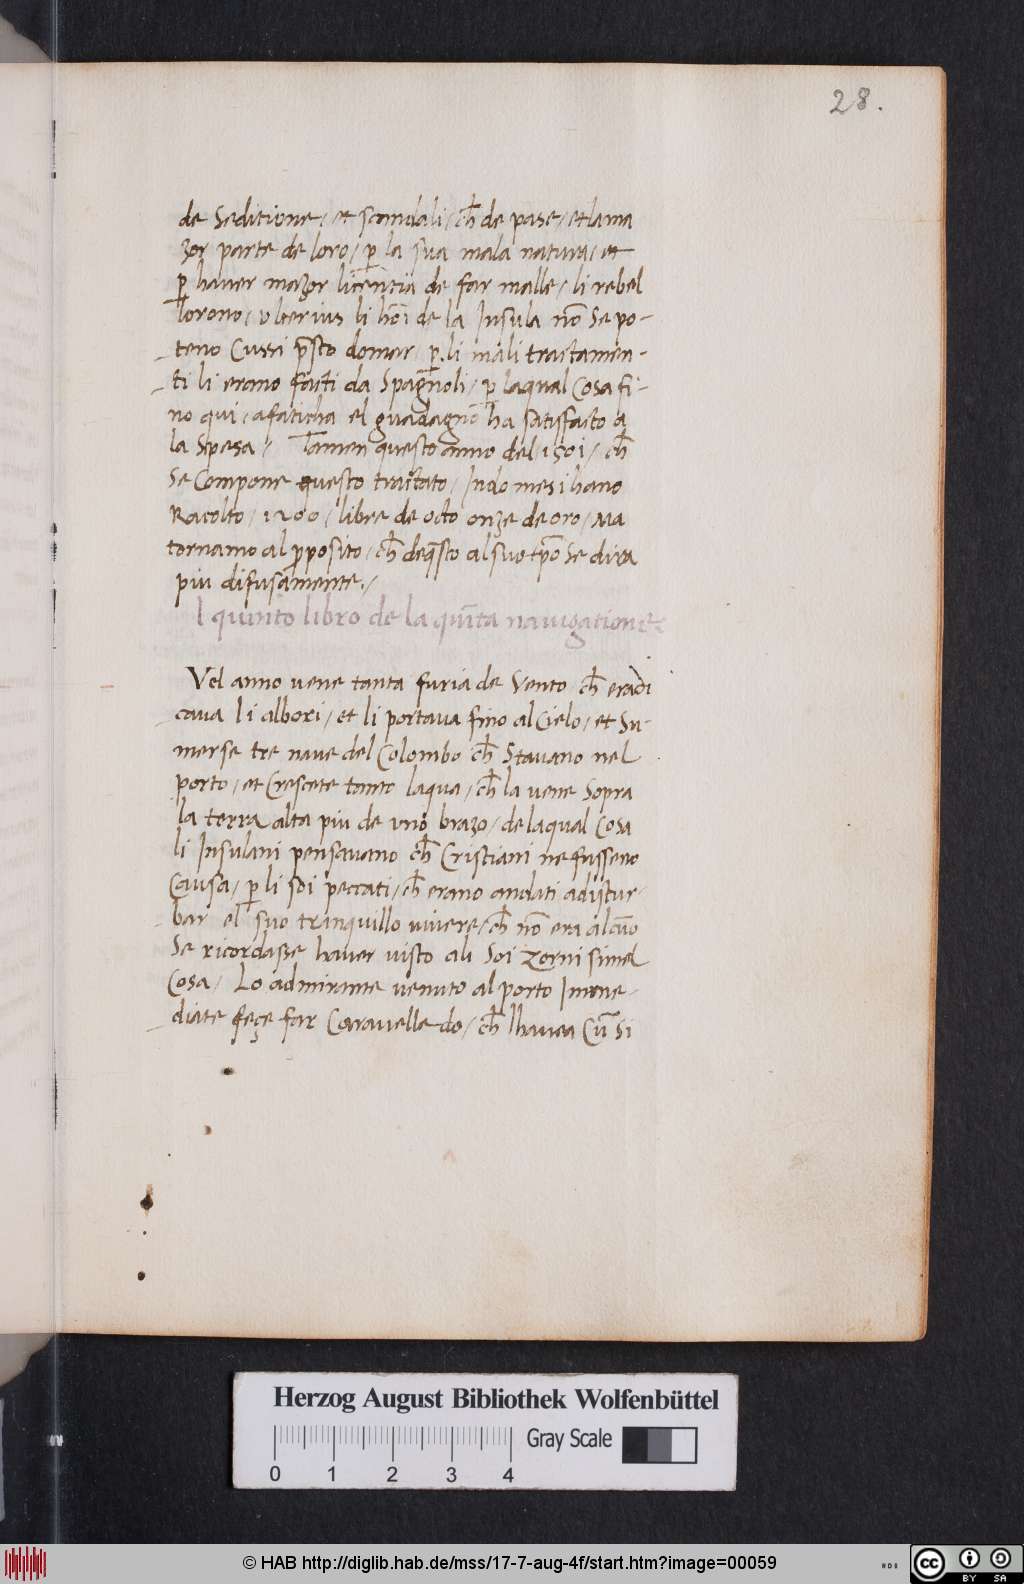 28.
de Seditione / et scandali / ch̄ de pase / et la ma
zor parte de loro / p̱ la sua mala natura / et
p̱ haver mazor licentia de far malle / li rebel
lorono / ulterius li hōi de la Insula nō Se po-
teno Cussi p̄sto domar / p̱ li mali tractamen-
ti li erano facti da Spagnoli / p̱ laqual Cosa fi-
no qui / afaticha el guadagno ha satisfacto a
la Spesa / Tamen questo anno del / 1501 / ch̄
Se Compone questo tractato / In do mesi hano
Racolto / 1200 / libre de octo onze de oro / Ma
tornamo al p̱posito / ch̄ de q̄sto al suo tp̄o Se dira
piu difusamente. /
l quinto libro de la quīta navigatione
Vel anno vene tanta furia de Vento ch̄ eradi
cava li albori / et li portava fino al Cielo / et Su-
merse tre nave del Colombo ch̄ Stavano nel
porto / et Crescete tanto laqua / ch̄ la vene Sopra
la terra alta piu de uno brazo / de laqual Cosa
li Insulani pensavano ch̄ Cristiani ne fusseno
Causa / p̱ li soi peccati / ch̄ erano andati adistur-
bar el suo tranquillo vivere / ch̄ nō era alcūo
Se ricordasse haver visto ali Soi zorni simel
Cosa / Lo admirante venuto al porto Imme-
diate feçe far Caravelle do / ch̄ lhavea Cū Si
Herzog August Bibliothek Wolfenbüttel
0 1 2 3 4 Gray Scale
© HAB http://diglib.hab.de/mss/17-7-aug-4f/start.htm?image=00059
cc BY SA